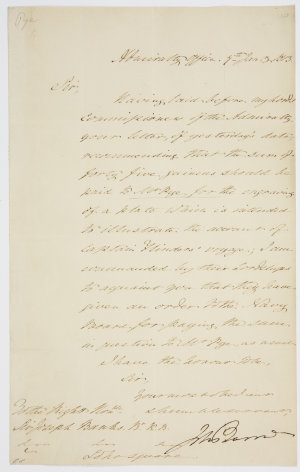 Pye
Admiralty Office, 9th Jan 1813
Sir,
Having laid before my Lords
Commissioners of the Admiralty
your letter of yesterday's date,
recommending that the sum of
forty five guineas should be
paid to Mr Pye, for the engraving
of a plate which is intended
to illustrate the account of
Captain Flinders' voyage; I am
commanded by their Lordships
to acquaint you that they have
given an order to the Navy
Board for paying the sum
in question to Mr Pye, as
I have the honour to be,
Sir,
Your most obedient
humble servant
To the Right Honble
Sir Joseph Banks Bt K.B.
Soho Square